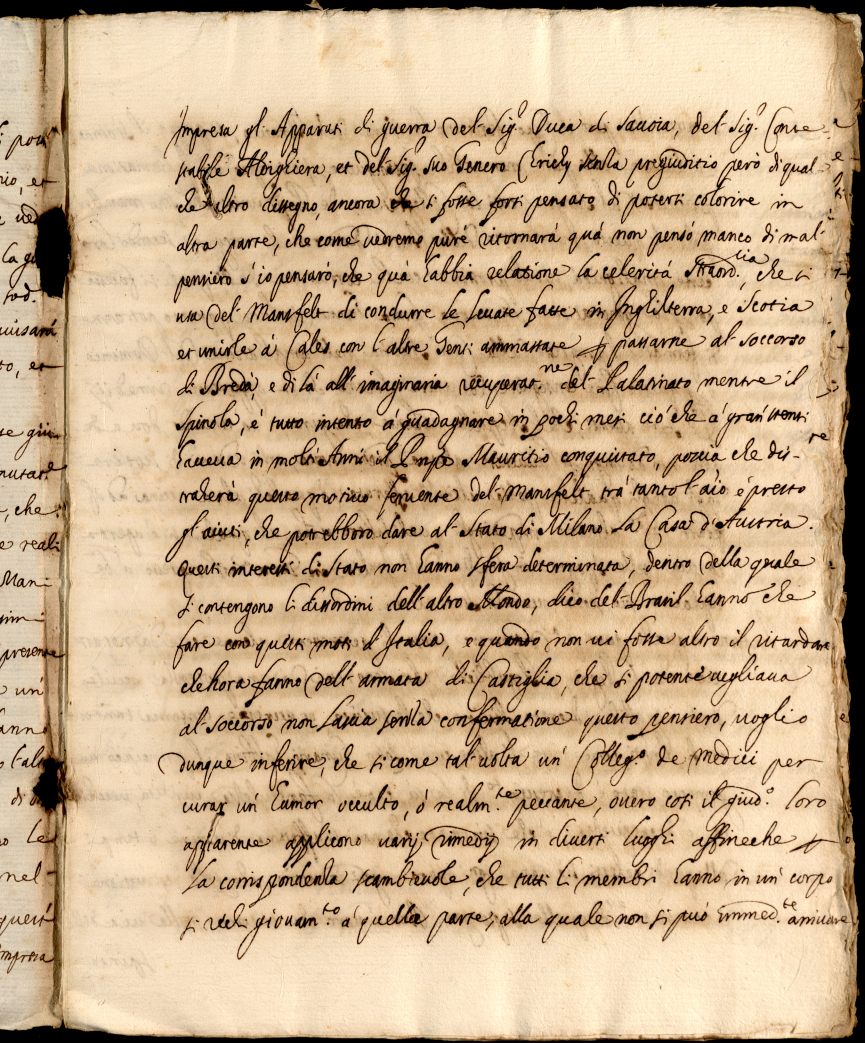 pou
nio, et
e ved
la gu
tod.
uuisará
to, et
te giu
mutar.
, che
e reali
Man=
presente
un'
anno
l'al
di
o le
nel-
quest
mpresa
Impresa gl'Apparati di guerra del Sig.r Duca di Sauoia, del Sig.r Conte
stabile Aldighiera, et del Sig.r suo Genero Crichy senza pregiuditio però di qual
che altro dissegno, ancora che si fosse forsi pensato di potersi colorire in
altra parte, che come uedremo puré ritornará quá non pensó manco di mal'
pensiero s'io pensaró, che quà habbia relatione la celeritá straord.ria, che si
usa del Mansfelt di condurre le leuate fatte in Inghilterra, e Scotia
et unirle á Cales con l'altre Genti ammassate p passarne al soccorso
di Bredà, e di là all'imaginaria recuperat.ne del Palatinato mentre il
Spinola, é tutto intento á guadagnare in pochi mesi ció che á gran stenti
haueua in molti Anni il Prnpe Mauritio conquistato, pozuia che dis-
traherà questo motiuo feruente del Mansfelt trá tanto l'aio é presto
gl'aiuti, che potrebboro dare al Stato di Milano la Casa d'Austria.
Questi interessi di stato non hanno sfera determinata, dentro della quale
si contengono li dissordini dell'altro Mondo, dico del Brasil hanno che
fare con questi moti d'Italia, e quando non ui fosse altro il ritardare
che hora fanno dell'armata di Castiglia, che si potente uegliaua
al soccorso non lascia senza confermatione questo pensiero, uoglio
dunque inferire, che si come tal uolta un' Colleg.o de Medici per
curar un' humor occulto, ó realm.te peccante, ouero cosi il giud.o loro
apparente applicono uarij rimedij in diuersi luoghi affineche p
la corrispondenza scambieuole, che tutti li membri hanno in un' corpo
si rechi giouam.to á quella parte, alla quale non si puó immed.te arriuare